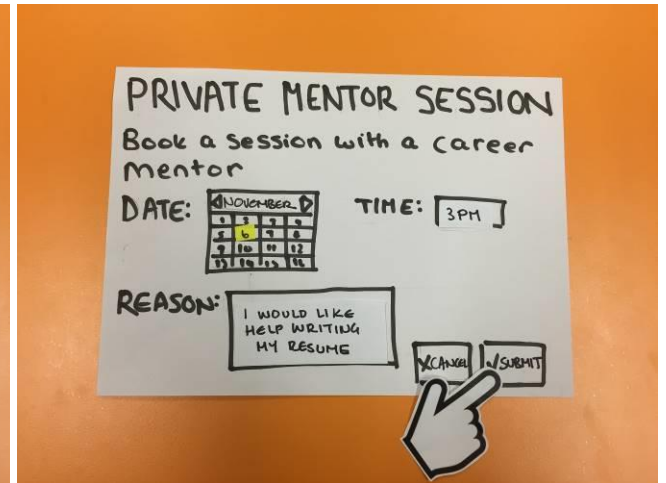 PRIVATE MENTOR SESSION
Book a session with a career
mentor
DATE:
NOVEMBER
1 2 3 4
5 6 7 8
9 10 11 12
13 14 15 16
TIME: 3PM
REASON:
I WOULD LIKE
HELP WRITING
MY RESUME
X CANCEL ✓SUBMIT